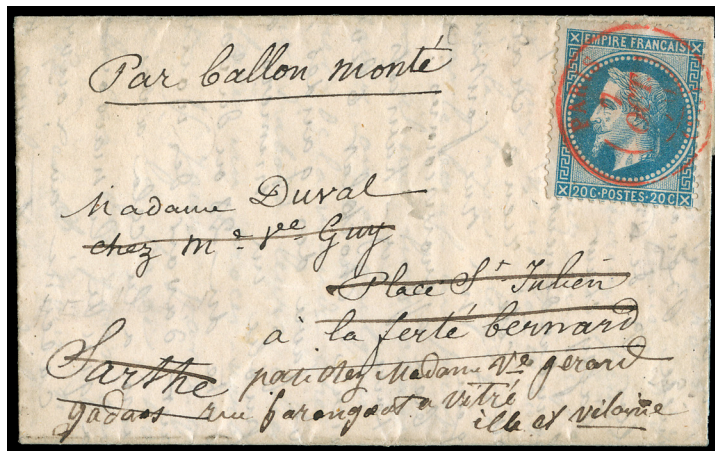 Par ballon monté
EMPIRE FRANCAIS
20 C · POSTES · 20 C
Madame Duval
chez Mᵉ Vᵉ Guy
Place Sᵗ Julien
à la ferté bernard
Sarthe
chez Madame Vᵉ gerard
rue a vitré
ille et vilaine